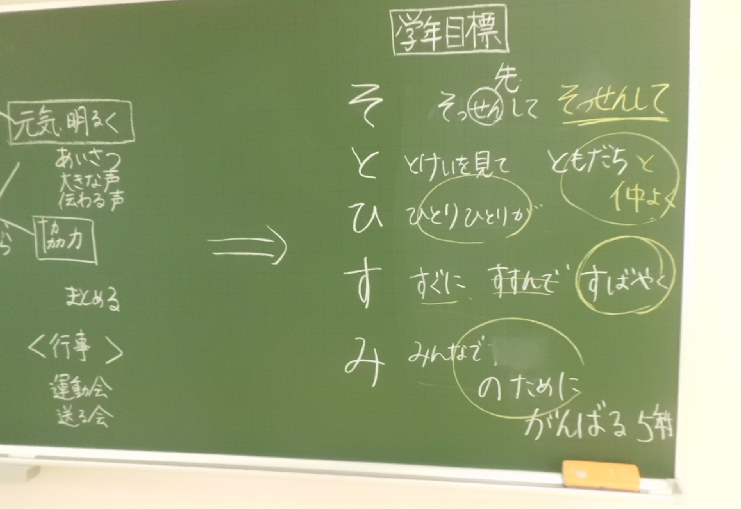 学年目標
元気・明るく
あいさつ
大きな声
伝わる声
協力
まとめる
<行事>
運動会
送る会
⇒
先
そ そっせんして そっせんして
と とけいを見て ともだちと
仲よく
ひ ひとりひとりが
す すぐに すすんで すばやく
み みんなで
のために
がんばる5年